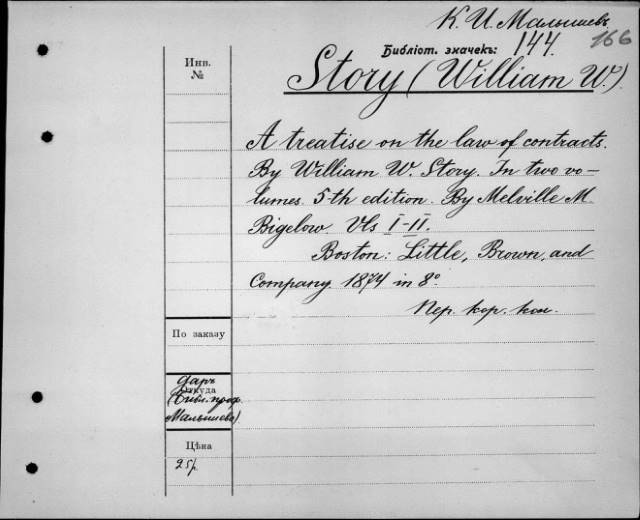 К. И. Малышевъ
Библіот. значекъ: 144. 166
Инв.
№
Story (William W.)
A treatise on the law of contracts.
By William W. Story. In two vo-
lumes. 5-th edition. By Melville M.
Bigelow. Vls I-II.
Boston: Little, Brown, and
Company. 1874 in 8º
Пер. кор. кож.
По заказу
Откуда
Даръ
(Библ. проф.
Малышева).
Цѣна
25р.